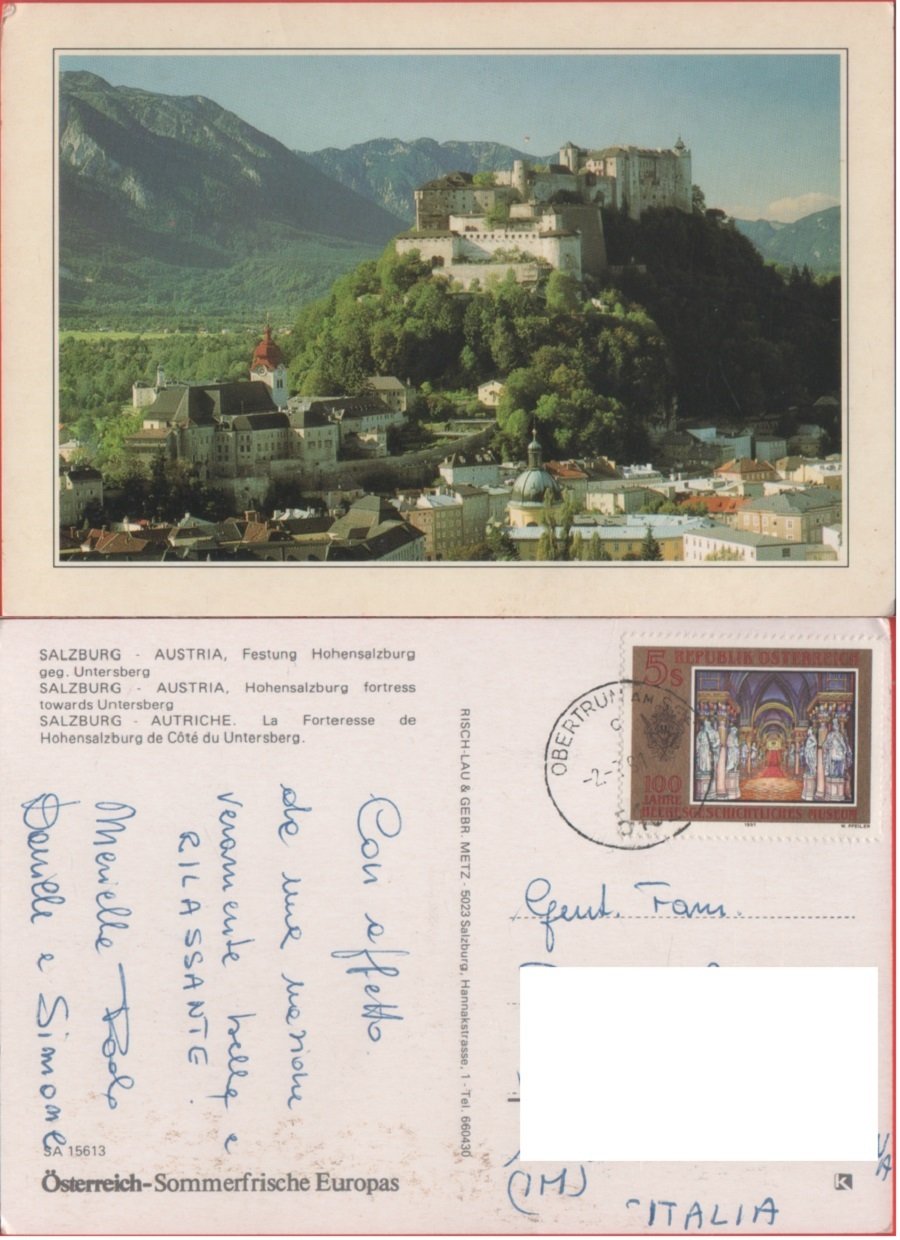 SALZBURG - AUSTRIA, Festung Hohensalzburg
geg. Untersberg
SALZBURG - AUSTRIA, Hohensalzburg fortress
towards Untersberg
SALZBURG - AUTRICHE. La Forteresse de
Hohensalzburg de Côté du Untersberg.
Con affetto.
da una nazione
veramente bella e
RILASSANTE.
Marielle Paolo
Danielle e Simone
SA 15613
Österreich-Sommerfrische Europas
RISCH-LAU & GEBR. METZ - 5023 Salzburg, Hannakstrasse, 1 - Tel. 660430
5S REPUBLIK ÖSTERREICH
100
JAHRE
HEERESGESCHICHTLICHES MUSEUM
1991 W. PFEILER
OBERTRUM AM
-2.-
Gent. Fam.
(IM)
ITALIA
K